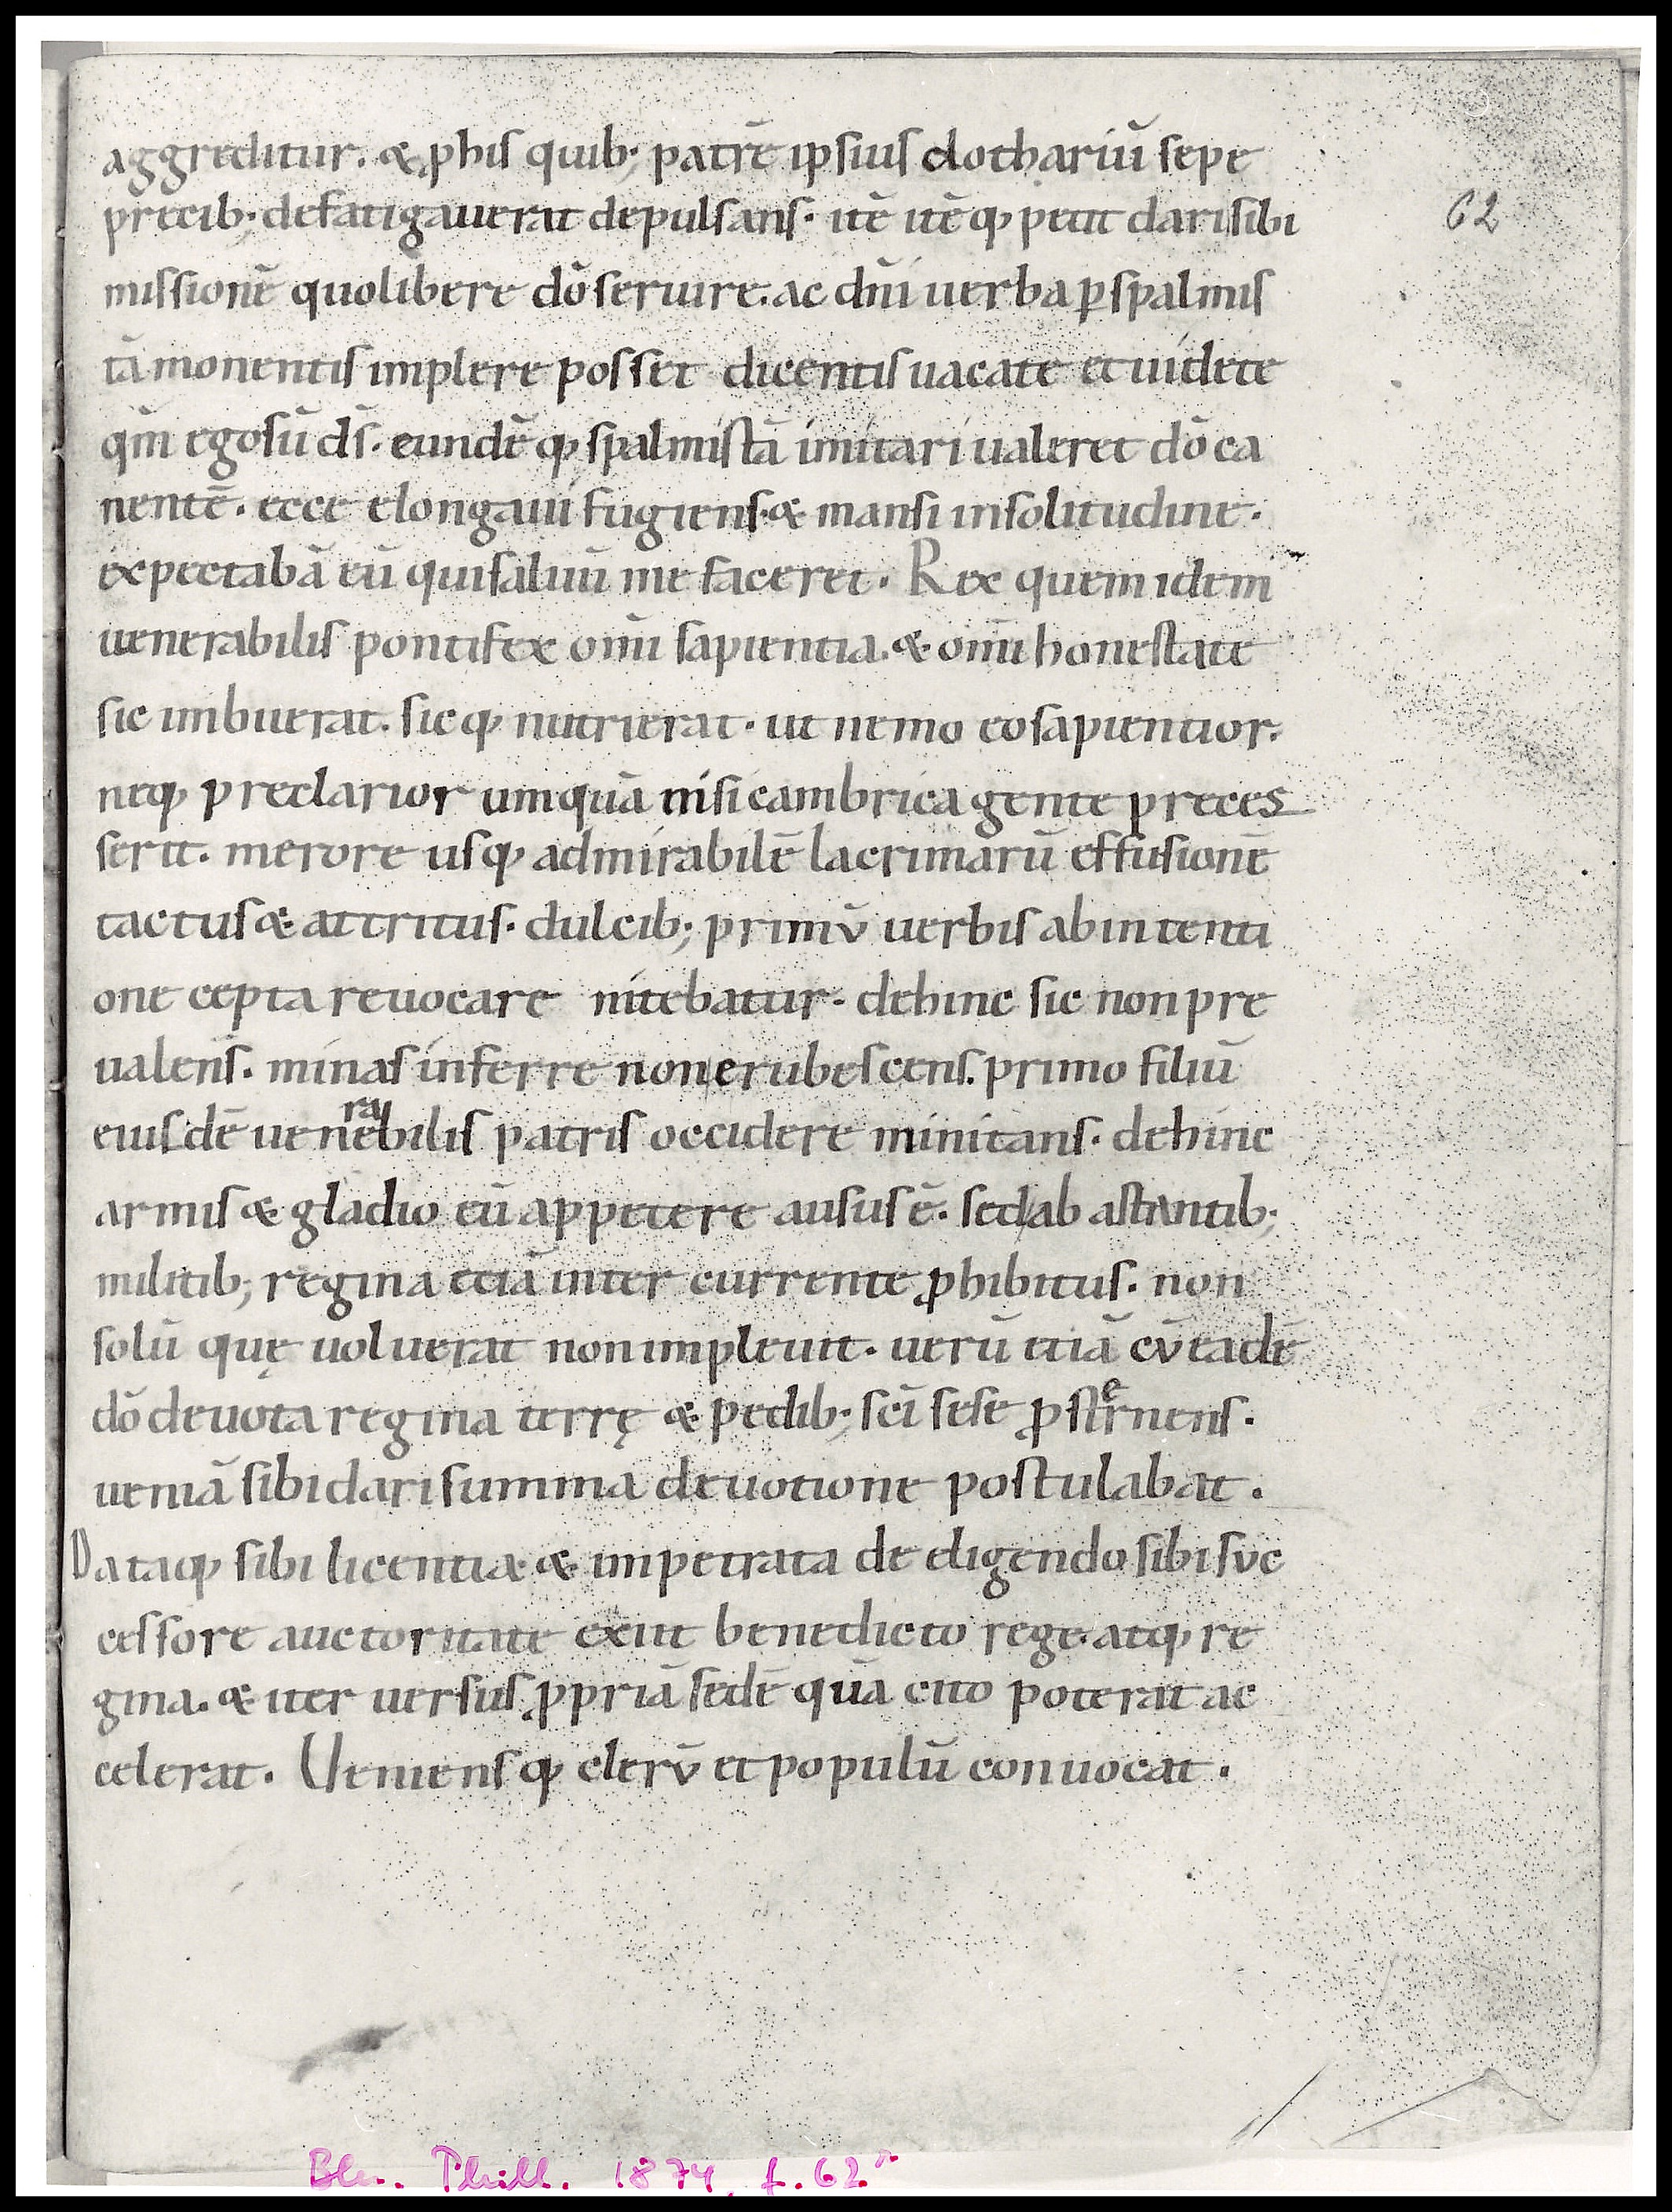 aggreditur. & ꝓhis quib; patrē ipsius clothariū sepe
precib; defatigauerat depulsans. itē itēq; petit dari sibi
62
missionē quo libere dō seruire. ac dn̄i uerba ꝑ spalmis
tā monentis implere posset dicentis uacate et uidete
qm̄ ego sū ds̄. eundēq; spalmistā imitari ualeret dō ca
nentē. ecce elongaui fugiens. & mansi in solitudine.
expectabā eū qui saluū me faceret. Rex quem idem
uenerabilis pontifex om̄i sapientia. & om̄i honestate
sic imbuerat. sicq; nutrierat. ut nemo eo sapientior.
neq; preclarior umquā nisi cambrica gente preces
serit. merore usq; admirabilē lacrimarū effusionē
tactus & attritus. dulcib; primū uerbis ab intenti
one cepta reuocare nitebatur. dehinc sic non pre
ualens. minas inferre non erubescens. primo filiū
eiusdē uenerabilis patris occidere minitans. dehinc
armis & gladio eū appetere ausus ē. sed ab astantib;
militib; regina etiā inter currente ꝓhibitus. non
solū quę uoluerat non impleuit. uerū etiā cū eadē
dō deuota regina terrę & pedib; sc̄i sese ꝓsternens.
ueniā sibi dari summa deuotione postulabat.
Dataq; sibi licentia & impetrata de eligendo sibi suc
cessore auctoritate exiit benedicto rege. atq; re
gina. & iter uersus ꝓpriā sedē quā cito poterat ac
celerat. Veniensq; clerū et populū conuocat.
Bln. Phill. 1874, f. 62r